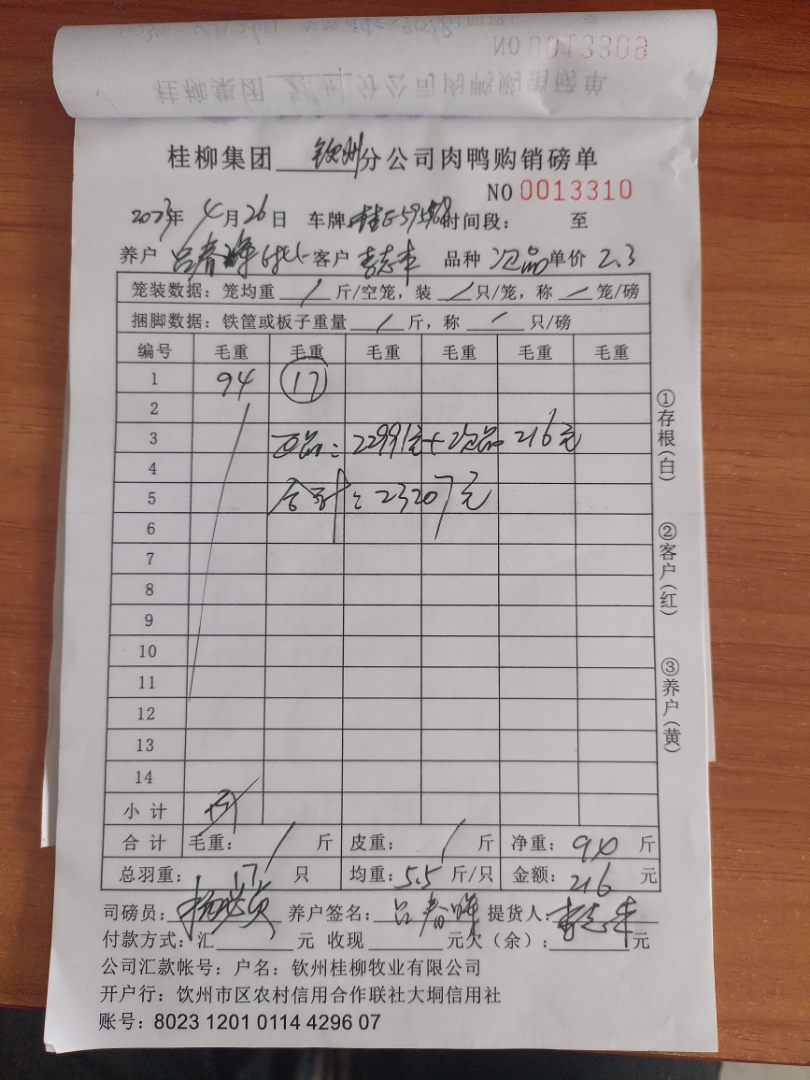 NO 0013309
桂柳集团 分公司肉鸭购销磅单
桂柳集团 钦州 分公司肉鸭购销磅单
NO 0013310
2023年 4月26日 车牌: 时间段: 至
养户 吕春晖 客户 李志丰 品种 次品 单价 2.3
笼装数据: 笼均重 / 斤/空笼, 装 / 只/笼, 称 / 笼/磅
捆脚数据: 铁筐或板子重量 / 斤, 称 / 只/磅
编号 毛重 毛重 毛重 毛重 毛重 毛重
1 94 17
2
3 正品: 22991元+次品 216元
4
5 合计: 23207元
6
7
8
9
10
11
12
13
14
小计
合计 毛重: / 斤 皮重: / 斤 净重: 94 斤
总羽重: 17 只 均重: 5.5 斤/只 金额: 216 元
司磅员: 养户签名: 吕春晖 提货人: 李志丰
付款方式: 汇 元 收现 元欠（余）: 元
公司汇款帐号: 户名: 钦州桂柳牧业有限公司
开户行: 饮州市区农村信用合作联社大垌信用社
账号: 8023 1201 0114 4296 07
①存根(白)
②客户(红)
③养户(黄)